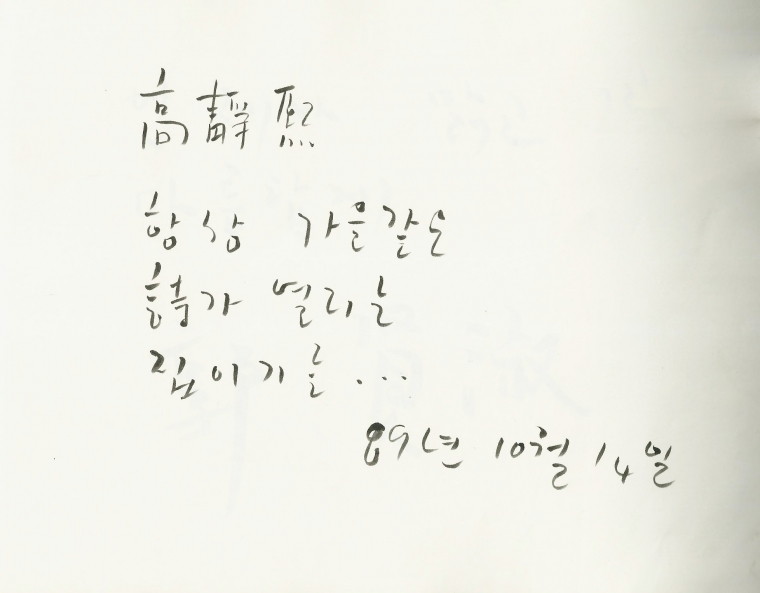 高靜熙
항상 가을같은
詩가 열리는
집이기를...
89년 10월 14일